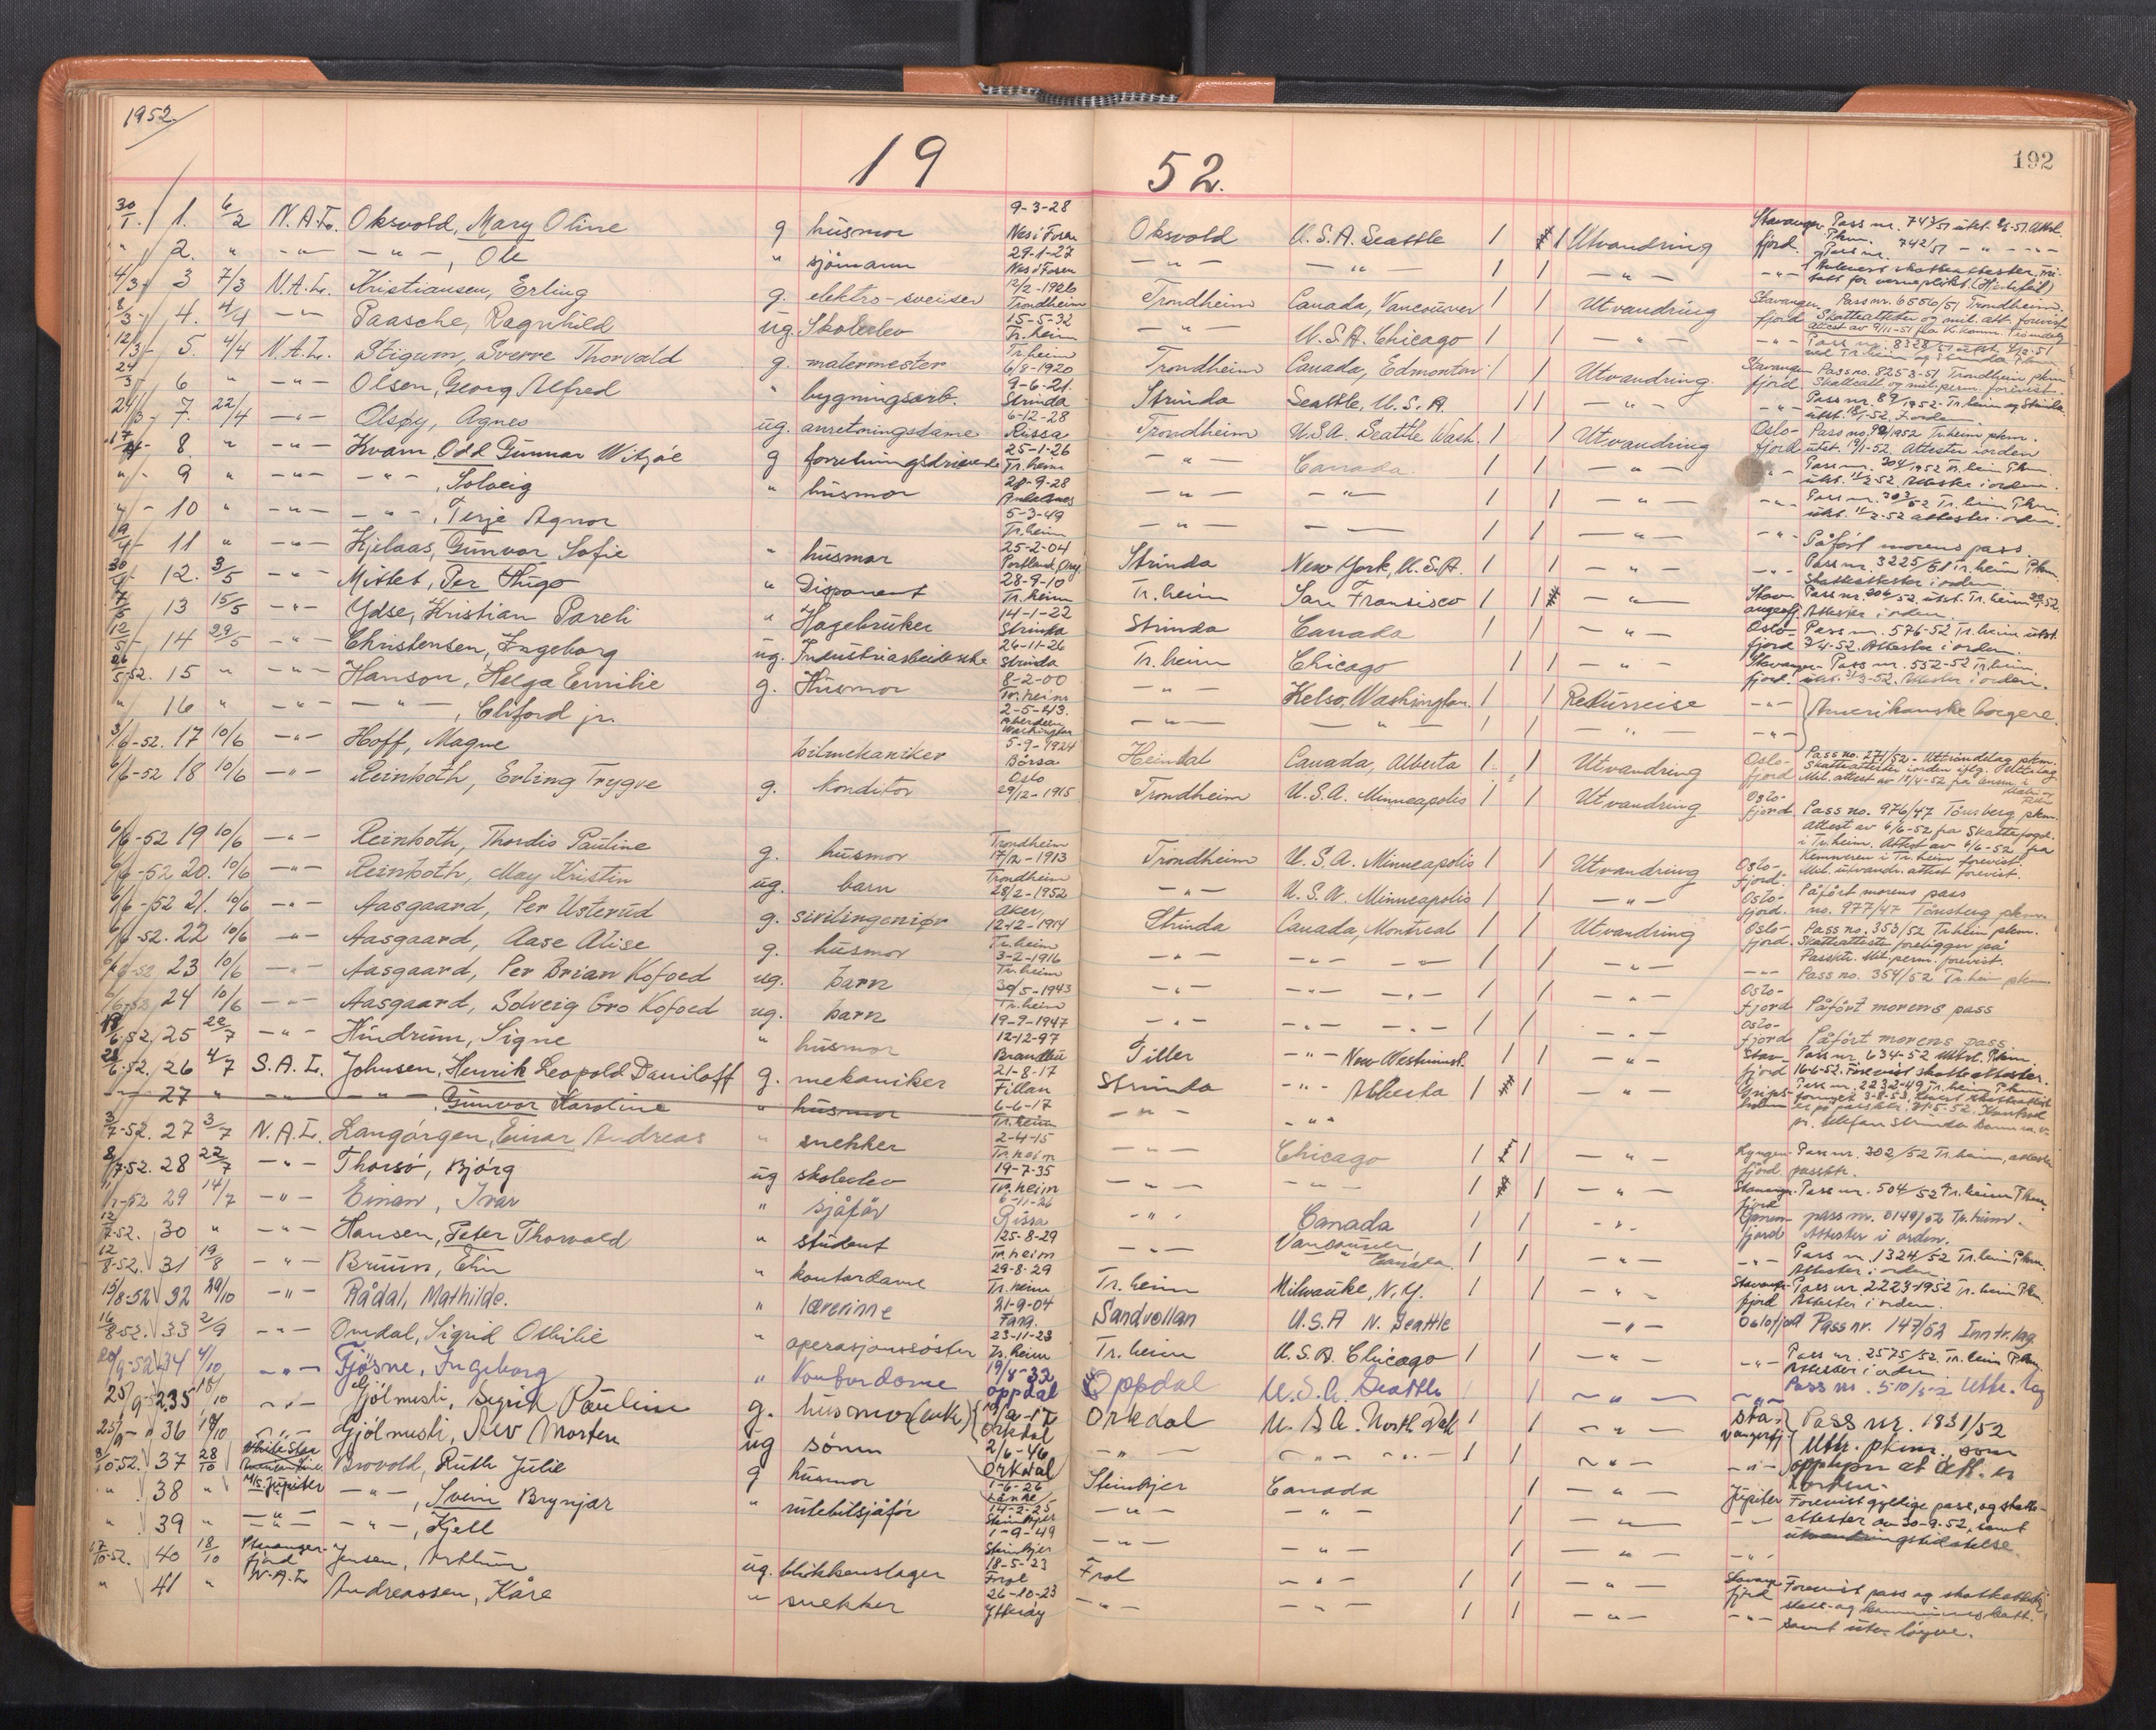 1952.
19 52.
192
30/1. 1. 6/2 N.A.L. Oksvold, Mary Oline g husmor 9-3-28 Nes i Fosen Oksvold U.S.A. Seattle 1 1 Utvandring Stavangerfjord Pass nr. 743/51
" 2. " -"- -"-, Ole " sjömann 29-1-27 Nes i Fosen -"- -"- 1 1 -"- -"- Pass nr. 742/51
4/3 3 7/3 N.A.L. Kristiansen, Erling g. elektro-sveiser 12/2-1926 Trondheim Trondheim Canada, Vancouver 1 1 Utvandring Stavangerfjord Pass nr. 6556/51 Trondheim. Skatteattester og mil. att. forevist
8/3 4. 4/4 -"- Paasche, Ragnhild ug. Skoleelev 15-5-32 Tr.heim -"- U.S.A. Chicago 1 -"- -"- Pass nr. 8328
12/3 5. 4/4 N.A.L. Stigum, Sverre Thorvald g. malermester Tr.heim 6/8-1920 Trondheim Canada, Edmonton 1 1 Utvandring. Stavangerfjord Pass no. 8253-51 Trondheim pkm. Skatteatt. og mil. perm. forevist.
24/3 6 " -"- Olsen, Georg Alfred " bygningsarb. 9-6-21. Strinda Strinda Seattle, U.S.A. 1 1 -"- -"- Pass nr. 89/1952. Tr.heim og Strinda
24/3 7. 22/4 -"- Olsøy, Agnes ug. anretningsdame 6-12-28 Rissa Trondheim U.S.A. Seattle Wash. 1 1 Utvandring Oslofjord Pass no. 1952 Tr.heim pkm. Attester i orden
17/4 8. " -"- Kvam, Odd Gunnar Witzöe g forretningsdrivende 25-1-26 Tr.heim -"- Canada 1 1 -"- -"- Pass nr. 304/1952 Tr.heim Pkm. Attester i orden.
" 9 " -"- -"-, Solveig " husmor 28-9-28 -"- -"- 1 1 -"- -"- Pass nr. 303/52 Tr.heim Pkm. attester i orden.
" 10 " -"- -"-, Terje Agnor 5-3-49 Tr.heim -"- -"- 1 1 -"- -"- Påført morens pass
19/4 11 " -"- Kjelaas, Gunvor Sofie " husmor 25-2-04 Portland, Strinda New York, U.S.A. 1 1 -"- -"- Pass nr. 3225/51 Tr.heim Pkm. Skatteattester i orden.
30/4 12. 3/5 -"- Mittet, Per Hugo " Disponent 28-9-10 Tr.heim Tr.heim San Fransisco 1 1 -"- Stavangerfj. Pass nr. 206/52 utst. Tr.heim Attester i orden.
13 15/5 -"- Ydse, Kristian Pareli " Hagebruker 14-1-22 Strinda Strinda Canada 1 1 -"- Oslofjord Pass nr. 576-52 Tr.heim utst. 3/4-52. Attester i orden.
12/5 14 29/5 -"- Christensen, Ingeborg ug. Industriarbeiderske 26-11-26 Strinda Tr.heim Chicago 1 1 -"- Stavangerfjord. Pass nr. 552-52 Tr.heim. Attester i orden.
26/5-52. 15 " -"- Hanson, Helga Emilie g. Husmor 8-2-00 Tr.heim -"- Kelso, Washington 1 1 Returreise -"- Amerikanske borgere.
" 16 " -"- -"-, Cliford jr. 2-5-43. Aberdeen Washington -"- -"- 1 1 -"- -"-
3/6-52. 17 10/6 -"- Hoff, Magne bilmekaniker 5-9-1924 Börsa Heimdal Canada, Alberta 1 1 Utvandring Oslofjord Pass no. 271/52 - Uttröndelag pkm.
6/6-52 18 10/6 -"- Reinboth, Erling Trygve g. konditor Oslo 29/12-1915 Trondheim U.S.A. Minneapolis 1 1 Utvandring Oslofjord Pass no. 976/47 Tönsberg pkm. Attest av 6/6-52 fra Skattefogd. i Tr.heim. Attest av 6/6-52 fra Kemneren i Tr.heim forevist. Mil. utvandr. attest forevist.
6/6-52 19 10/6 -"- Reinboth, Thordis Pauline g. husmor Trondheim 17/12-1913 Trondheim U.S.A. Minneapolis 1 1 Utvandring Oslofjord.
6/6-52 20. 10/6 -"- Reinboth, May Kristin ug. barn Trondheim 28/2-1952 -"- U.S.A. Minneapolis 1 1 -"- Oslofjord. Påført morens pass no. 977/47 Tönsberg pkm.
6/6-52 21. 10/6 -"- Aasgaard, Per Usterud g. sivilingeniør Aker, 12-12-1914 Strinda Canada, Montreal 1 1 Utvandring Oslofjord Pass no. 353/52 Tr.heim pkm. Skatteattester foreligger på Passktr. Mil. perm. forevist.
6/6-52. 22 10/6 -"- Aasgaard, Aase Alise g. husmor Tr.heim 3-2-1916 -"- -"- -"- 1 1 -"- -"- Pass no. 354/52 Tr.heim pkm
6/6-52 23 10/6 -"- Aasgaard, Per Brian Kofoed ug. barn Tr.heim 30/5-1943 -"- -"- -"- 1 1 -"- Oslofjord Påført morens pass
6/6-52 24 10/6 -"- Aasgaard, Solveig Gro Kofoed ug. barn Tr.heim 19-9-1947 -"- -"- -"- 1 1 -"- Oslofjord Påført morens pass.
19/6-52. 25 22/7 -"- Hindrum, Signe " husmor 12-12-97 Brandbu Tiller -"- New Westminst. 1 1 -"- Stavfjord Pass nr. 634-52 Uttrl. Pkm. 16-6-52. Forevist skatteattester.
26/6-52. 26 4/7 S.A.L. Johnsen, Henrik Leopold Daniloff g. mekaniker 21-8-17 Fillan Strinda -"- Alberta 1 1 -"- Gripsholm Pass nr. 2232-49 Tr.heim Pkm.
27 " -"- -"-, Gunvor Karoline " husmor 6-6-17 Tr.heim -"- -"-
3/7-52. 27 3/7 N.A.L. Langörgen, Einar Andreas " snekker 2-4-15 Tr.heim -"- Chicago 1 1 -"- Lyngenfjord Pass nr. 302/52 Tr.heim, passktr.
8/7-52. 28 22/7 -"- Thorsö, Bjórg ug skoleelev 19-7-35 Tr.heim -"- -"- 1 1 -"- Stavangerfjord Pass nr. 504/52 Tr.heim Pkm.
11/7-52 29 14/7 -"- Einan, Ivar " sjåför 6-11-26 Rissa -"- Canada 1 1 -"- pass nr. 0149/52 Tr.heim. Attester i orden.
12/7-52. 30 " -"- Hansen, Peter Thorvald " student 25-8-29 Tr.heim -"- Vancouver, Canada 1 1 -"- -"- Pass nr. 1324/52 Tr.heim Pkm. Attester i orden.
12/8-52. 31 19/8 -"- Bruun, Elin " kontordame 29-8-29 Tr.heim Tr.heim Milwauke, N.Y. 1 1 -"- Stavangerfjord Pass nr 2223-1952 Tr.heim Pkm. Attester i orden.
15/8-52 32 29/10 -"- Rådal, Mathilde. " lærerinne 21-9-04 Sandvollan U.S.A N. Seattle -"- Oslofjord Pass nr. 147/52 Inntr.lag
16/8-52. 33 2/9 -"- Omdal, Sigrid Othilie " operasjonssöster 23-11-23 Tr.heim Tr.heim U.S.A. Chicago 1 1 -"- -"- Pass nr. 2575/52. Tr.heim Pkm. Attester i orden
20/9-52 34 4/10 -"- Fjösne, Ingeborg " Kontordame 19/8-32 Oppdal Oppdal U.S.A. Seattle 1 1 -"- -"- Pass nr. 510/52 Uttr.lag
25/9-52 35 18/10 -"- Gjölmesli, Sigrid Pauline g. husmor (enke) Orkdal Orkdal U.S.A. North Dak 1 1 -"- Stavangerfj. Pass nr. 1831/52
25/9-" 36 18/10 -"- Gjölmesli, Alv Morten ug sönn 2/6-46 Orkdal -"- -"- -"- 1 1 -"- -"- Uttr. pkm., som opplyser at att. er i orden.
3/10-52. 37 28/10 White Star Brovold, Ruth Julie g husmor 1-6-26 Lånke Steinkjer Canada 1 -"- Jupiter Forevist gyldige pass, og skatte-
" 38 " M/s. Jupiter -"-, Svein Brynjar " rutebilsjåför 14-2-25 Steinkjer -"- -"- 1 -"- -"- attester av 30-9-52, samt
" 39 " -"- -"-, Kjell 1-9-49 Steinkjer -"- -"- 1 -"- -"- utvandringstillatelse.
17/10-52. 40 18/10 Stavangerfjord N.A.L Jensen, Arthur ug. blikkenslager 18-5-23 Frol Frol -"- 1 1 -"- Stavangerfjord Forevist pass og skatteattester
" 41 " Andreassen, Kåre " snekker 26-10-23 Ytterøy -"- -"- 1 1 -"- -"- samt utr. löyve.